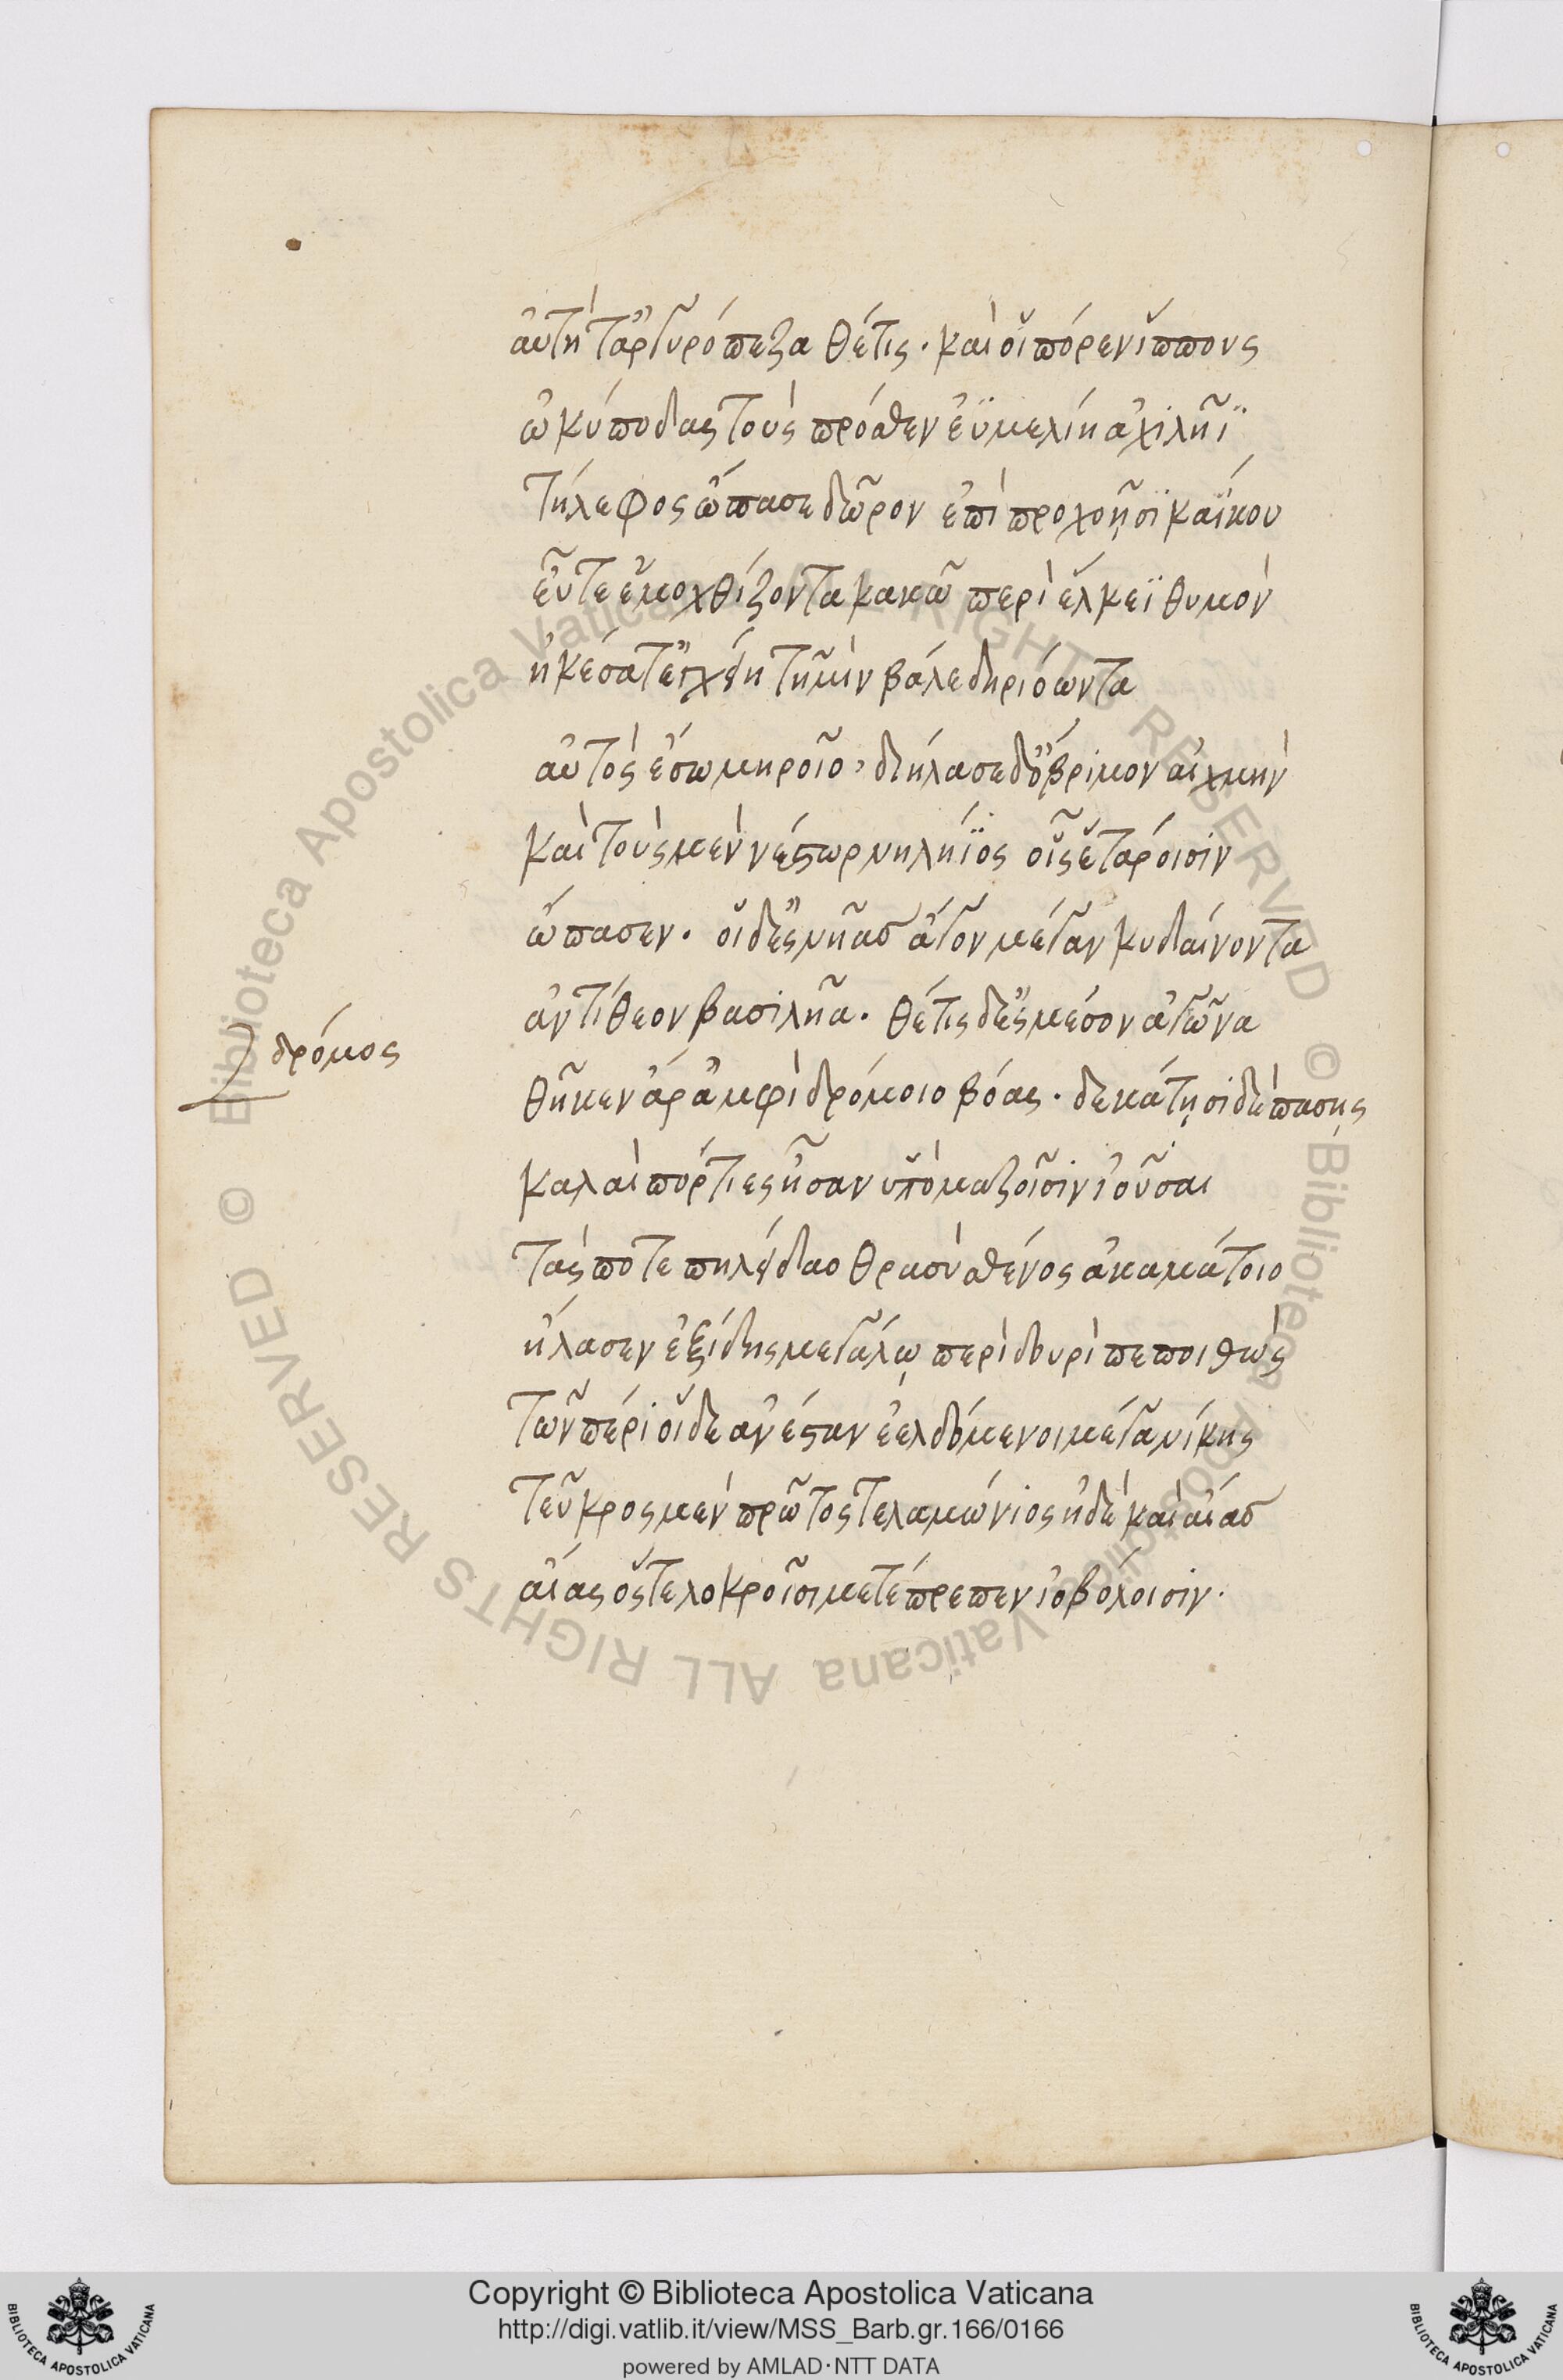 αὐτὴ τ' ἀργυρόπεζα θέτις. καὶ οἱ πόρεν ἵππους
ὠκύποδας τοὺς πρόσθεν ἐϋμελίῃ ἀχιλῆϊ
τήλεφος ὤπασε δῶρον ἐπὶ προχοῇσι καΐκου
εὖτέ ἑ μοχθίζοντα κακῶ περὶ ἕλκεϊ θυμὸν
ἠκέσατ' ἐγχείη τῆ μιν βάλε δηριόωντα
αὐτὸς ἔσω μηροῖο, διήλασε δ' ὄβριμον αἰχμὴν
καὶ τοὺς μὲν νέστωρ νηλήϊος οἷς ἑτάροισιν
ὤπασεν. οἱ δ' ἐς νῆας ἄγον μέγαν κυδαίνοντα
ἀντίθεον βασιλῆα. θέτις δ' ἐς μέσον ἀγῶνα
δρόμος
θῆκεν ἄρ' ἀμφὶ δρόμοιο βόας. δέκα τῇσι δὲ πάσῃς
καλαὶ πόρτιες ἦσαν ὑπὸ μαζοῖσιν ἰοῦσαι
τάς ποτε πηλείδαο θρασὺ σθένος ἀκαμάτοιο
ἤλασεν ἐξ ἴδης μεγάλῳ περὶ δουρὶ πεποιθὼς
τῶν πέρι οἱ δὲ ἀνέσταν ἐελδόμενοι μέγα νίκης
τεῦκρος μὲν πρῶτος τελαμώνιος ἠδὲ καὶ αἴας
αἴας ὅς τε λοκροῖσι μετέπρεπεν ἰοβόλοισιν.
© Biblioteca Apostolica Vaticana ALL RIGHTS RESERVED
© Biblioteca Apostolica Vaticana ALL RIGHTS RESERVED
Copyright © Biblioteca Apostolica Vaticana
http://digi.vatlib.it/view/MSS_Barb.gr.166/0166
powered by AMLAD·NTT DATA
BIBLIOTECA APOSTOLICA VATICANA
BIBLIOTECA APOSTOLICA VATICANA